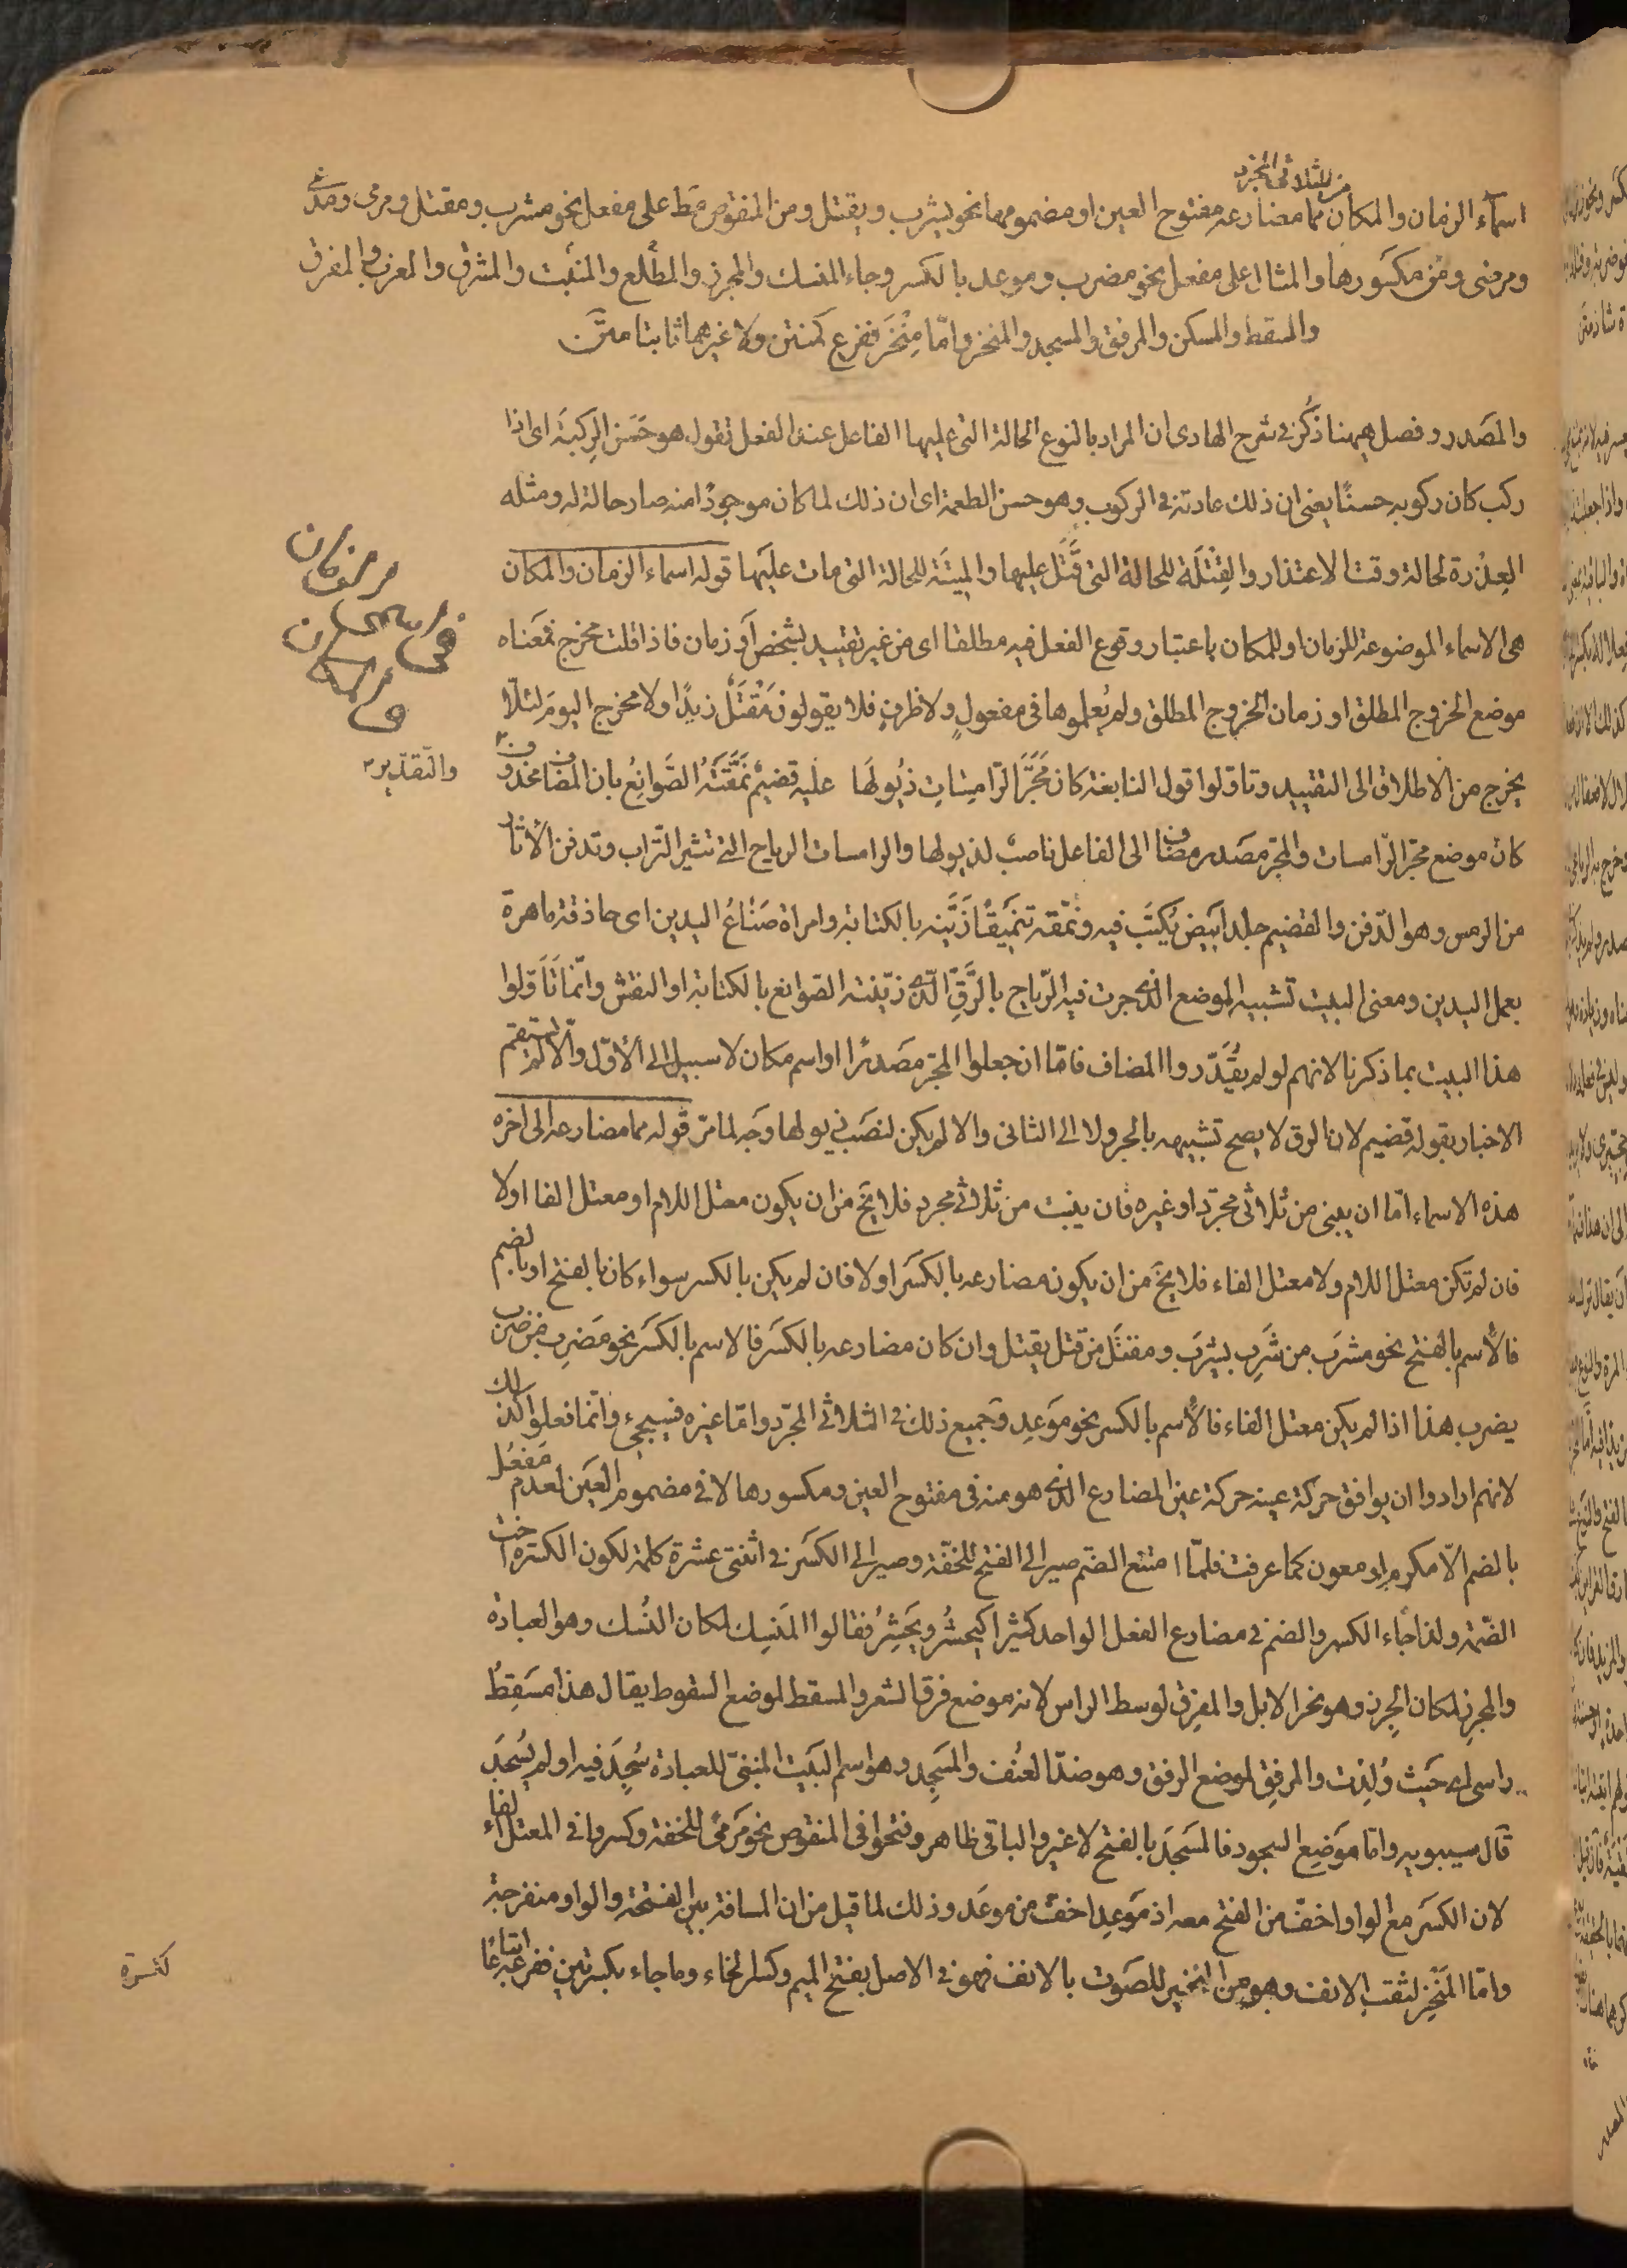 من الثلاثي المجرد
اسماء الزمان والمكان مما مضارعه مفتوح العين او مضمومها نحو يشرب ويقتل ومن المنقوص مط على مفعل نحو مشرب ومقتل ومرمى ومدعى
ومرضى ومن مكسورها والمثال على مفعل نحو مضرب وموعد بالكسر وجاء المنسك والمجزر والمطلع والمنبت والمشرق والمغرب والمفرق
والمسقط والمسكن والمرفق والمسجد والمنخر واما مِنْخر ففرع كمنتن ولا غيرهما ثابتا متن
والمصدر وفصل ههنا ذكر في شرح الهادى ان المراد بالنوع الحالة التى عليها الفاعل عند الفعل تقول هو حَسَن الرِكبَة اى اذا
ركب كان ركوبه حسنًا يعنى ان ذلك عادته في الركوب وهو حسن الطعمة اى ان ذلك لما كان موجودًا منه صار حالة له ومثله
العِذْرة لحالة وقت الاعتذار والقِتْلَة للحالة التى قُتِل عليها والمِيتَة للحالة التى مات عليها قوله اسماء الزمان والمكان
في اسمى الزمان والمكان
هى الاسماء الموضوعة للزمان او للمكان باعتبار وقوع الفعل فيه مطلقا اى من غير تقييد بشخص او زمان فاذا قلت مخرج فمعناه
موضع الخروج المطلق او زمان الخروج المطلق ولم يُعلموها فى مفعولٍ ولا ظرفٍ فلا يقولون مَقْتَلٌ زيدًا ولا مخرج اليومَ لئلّا
يخرج من الاطلاق الى التقييد وتاوّلوا قول النابغة كان مَجَرَّ الرّامِسَاتِ ذُيُولَهَا عليه قضيمٌ نَمَّقَتْهُ الصَّوَانِعُ بان المضاف محذوف
والتّقدير
كانّ موضع مجرّ الرّامسات والمجرّ مصدر مضاف الى الفاعل ناصبٌ لذيولها والرامسات الرياح التي تثير التّراب وتدفن الآثار
من الرمس وهو الدّفن والقضيم جلد ابيض يُكتَب فيه ونمّقه تنميقًا زيّنه بالكتابة وامراة صَنَاعُ اليدين اى حاذقة ماهرة
بعمل اليدين ومعنى البيت تشبيه الموضع الذى جرت فيه الرّياح بالرَّقِّ الّذى زيّنته الصّوانع بالكتابة او النقش وانّما تَاَوّلوا
هذا البيت بما ذكرنا لانهم لو لم يُقَدّروا المضاف فامّا ان جعلوا المجرّ مصدرًا او اسم مكان لا سبيل الى الأوّل والّا لم يستقم
الاخبار بقوله قضيم لان الرق لا يصح تشبيهه بالجر ولا الى الثانى والا لم يكن لنصَب ذيولها وَجه لما مرّ قوله مما مضارعه الى اخره
هذه الاسماء امّا ان يبنى من ثلاثى مجرّد او غيره فان بنيت من ثلاثى مجرد فلا يخ من ان يكون معتل اللام او معتل الفاء اولا
فان لم تكن معتل اللام ولا معتل الفاء فلا يخَ من ان يكون مضارعه بالكسر اولا فان لم يكن بالكسر سواء كان بالفتح او بالضم
فالاسم بالفتح نحو مشرَب من شَرِب يشرَب ومقتَل من قتل يقتل وان كان مضارعه بالكسر فالاسم بالكسر نحو مَضرِب من ضرب
يضرب هذا اذا لم يكن معتل الفاء فالاسم بالكسر نحو موَعِد وجميع ذلك فى الثلاثى المجرّد وامّا غيره فسيجىء وانّما فعلوا كذلك
لانهم ارادوا ان يوافق حركة عينه حركة عين المضارع الذى هو منه فى مفتوح العين ومكسورها لا فى مضموم العين لعدم مَفعُل
بالضم الّا مكرم او معون كما عرفت فلمّا امتنع الضّم صير الى الفتح للخفّة وصير الى الكسر فى اثنتى عشرة كلمة لكون الكسرة اخت
الضّمة ولذا جَاء الكسر والضم فى مضارع الفعل الواحد كثيرا كيحشُر ويَحشِرُ فقالوا المنسِك لمكان النُسك وهو العبادة
والمجزِر لمكان الجزر وهو نحر الابل والمفرِق لوسط الراس لانه موضع فرق الشعر والمسقط لموضع السقوط يقال هذا مسقِطُ
راسى اى حيث وُلِدْت والمرفِق لموضع الرفق وهو ضدّ العُنف والمَسجِد وهو اسم البَيت المبنىّ للعبادة سُجِدَ فيه او لم يُسْجَد
قال سيبويه وامّا موضِع السجود فالمسجَد بالفتح لا غير والباقى ظاهر وفتحوا فى المنقوص نحو مَرمًى للخفة وكسروا فى المعتل الفاء
لان الكسَر مع الواو اخفّ من الفتح معه اذ مَوعِد اخفّ من موعَد وذلك لما قيل من ان المسافة بين الفتحة والواو منفرجة
وامّا المَنْخِر لثقب الانف وهو من النخير للصّوت بالانف فهو فى الاصل بفتح الميم وكسر الخاء وما جاء بكسرتين ففرع اتباعًا
لكسرة